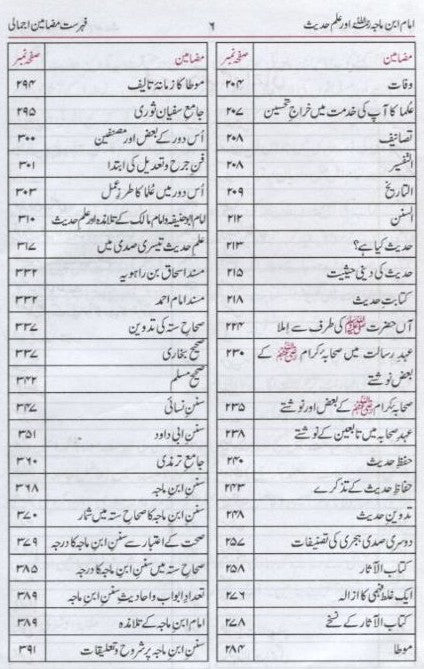 امام ابن ماجہ رحمۃ اللہ علیہ اور علم حدیث ۶ فہرست مضامین اجمالی
مضامین صفحہ نمبر
وفات ۲۰۴
علما کا آپ کی خدمت میں خراجِ تحسین ۲۰۷
تصانیف ۲۰۸
التفسیر ۲۰۸
التاریخ ۲۰۹
السنن ۲۱۲
حدیث کیا ہے؟ ۲۱۳
حدیث کی دینی حیثیت ۲۱۵
کتابتِ حدیث ۲۱۸
آں حضرت ﷺ کی طرف سے املا ۲۲۴
عہدِ رسالت میں صحابہ کرام ﷢ کے ۲۳۰
بعض نوشتے
صحابہ کرام ﷢ کے بعض اور نوشتے ۲۳۵
عہدِ صحابہ میں تابعین کے نوشتے ۲۳۸
حفظِ حدیث ۲۴۰
حفاظِ حدیث کے تذکرے ۲۴۳
تدوینِ حدیث ۲۴۸
دوسری صدی ہجری کی تصنیفات ۲۵۷
کتاب الآثار ۲۵۸
ایک غلط فہمی کا ازالہ ۲۷۶
کتاب الآثار کے نسخے ۲۷۸
موطا ۲۸۴
مضامین صفحہ نمبر
موطا کا زمانۂ تالیف ۲۹۴
جامع سفیان ثوری ۲۹۵
اُس دور کے بعض اور مصنفین ۳۰۰
فنِ جرح و تعدیل کی ابتدا ۳۰۱
اُس دور میں عُلما کا طرزِ عمل ۳۰۳
امام ابو حنیفہ و امام مالک کے تلامذہ اور علم حدیث ۳۱۰
علمِ حدیث تیسری صدی میں ۳۱۷
مسند اسحاق بن راہویہ ۳۳۲
مسند امام احمد ۳۳۲
صحاح ستہ کی تدوین ۳۳۷
صحیح بخاری ۳۳۷
صحیح مسلم ۳۴۲
سنن نسائی ۳۴۷
سنن ابی داود ۳۵۱
جامع ترمذی ۳۶۰
سنن ابن ماجہ ۳۶۸
سنن ابن ماجہ کا صحاح ستہ میں شمار ۳۷۰
صحت کے اعتبار سے سنن ابن ماجہ کا درجہ ۳۷۹
صحاح ستہ میں سنن ابن ماجہ کا درجہ ۳۸۵
تعدادِ ابواب و احادیثِ سنن ابن ماجہ ۳۸۹
امام ابن ماجہ کے تلامذہ ۳۸۹
سنن ابن ماجہ پر شروح و تعلیقات ۳۹۱